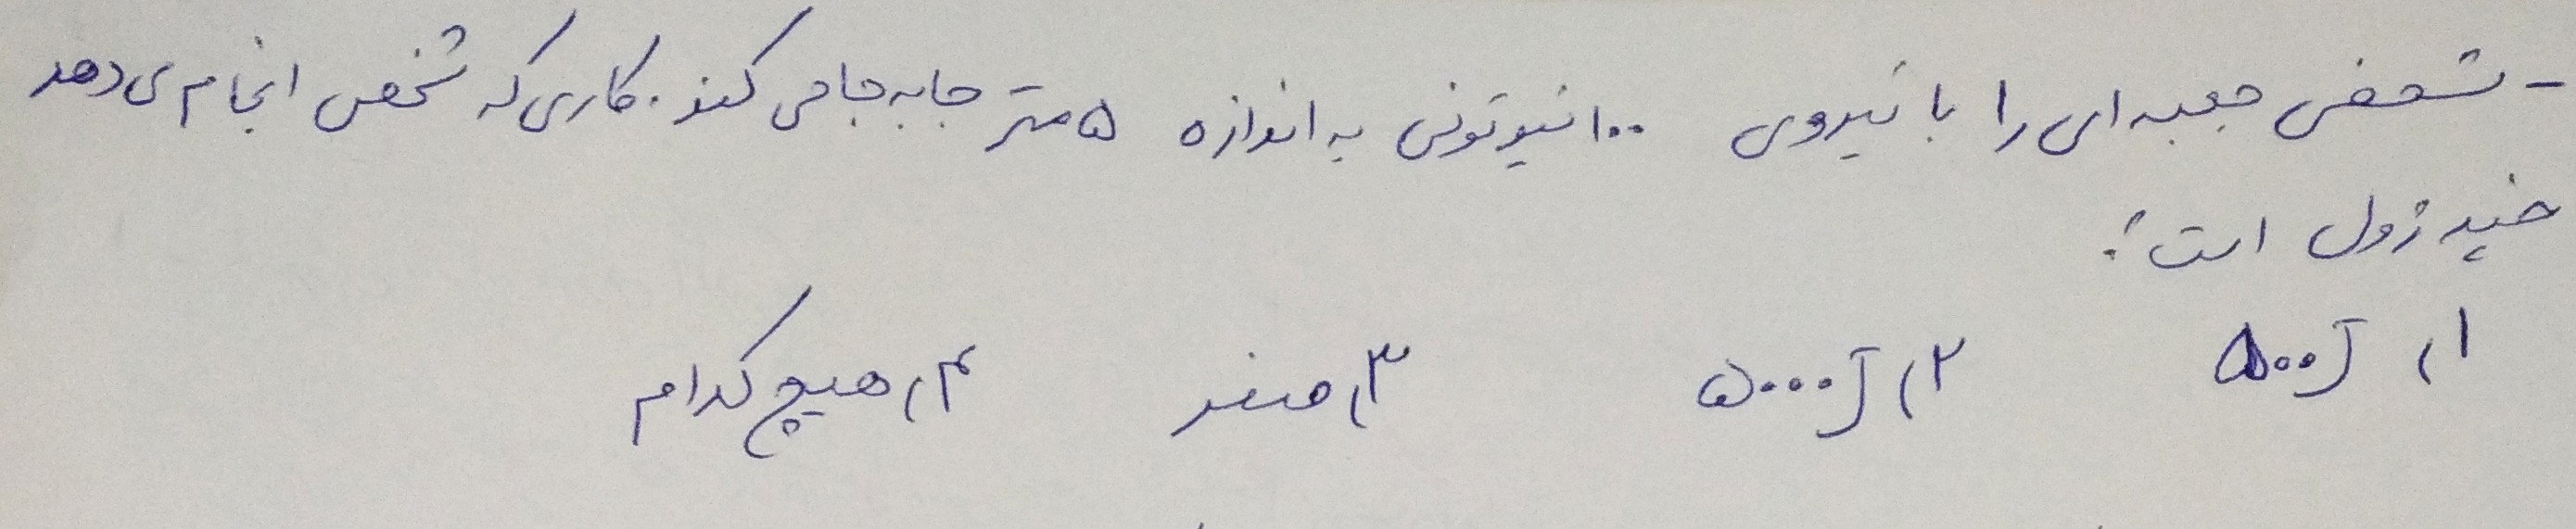 - شخصی جعبه ای را با نیروی ۱۰۰ نیوتونی به اندازه ۵ متر جا به جا می کند. کاری که شخص انجام می دهد
چند ژول است؟
۱) ۵۰۰ J ۲) ۵۰۰۰ J ۳) صفر ۴) هیچ کدام